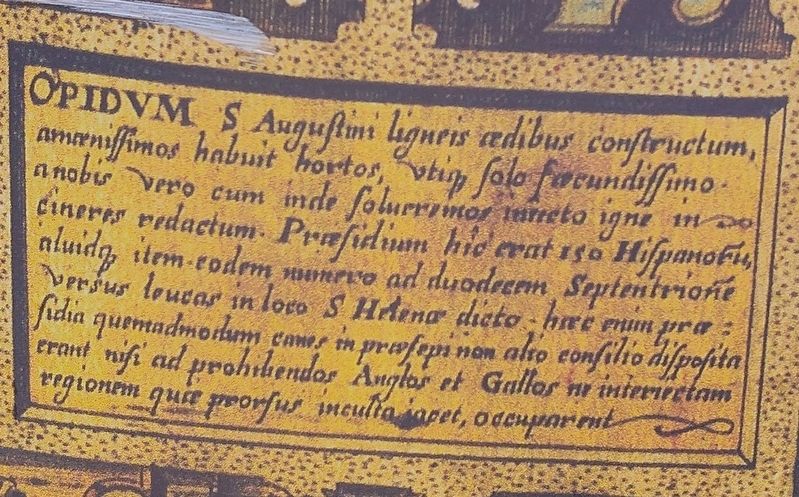 OPIDVM S Auguſtini ligneis ædibus conſtructum,
amœniſſimos habuit hortos, vtiq; ſolo fœcundiſſimo.
a nobis vero cum inde ſolueremus iniecto igne in
cineres redactum. Præſidium hic erat 150 Hiſpanorũ,
aliudq; item eodem numero ad duodecem Septentrionẽ
verſus leucas in loco S Helenæ dicto. hæc enim præ:
ſidia quemadmodum canes in præſepi non alio conſilio diſpoſita
erant niſi ad prohibendos Anglos et Gallos ne interiectam
regionem quæ prorſus inculta jacet, occuparent